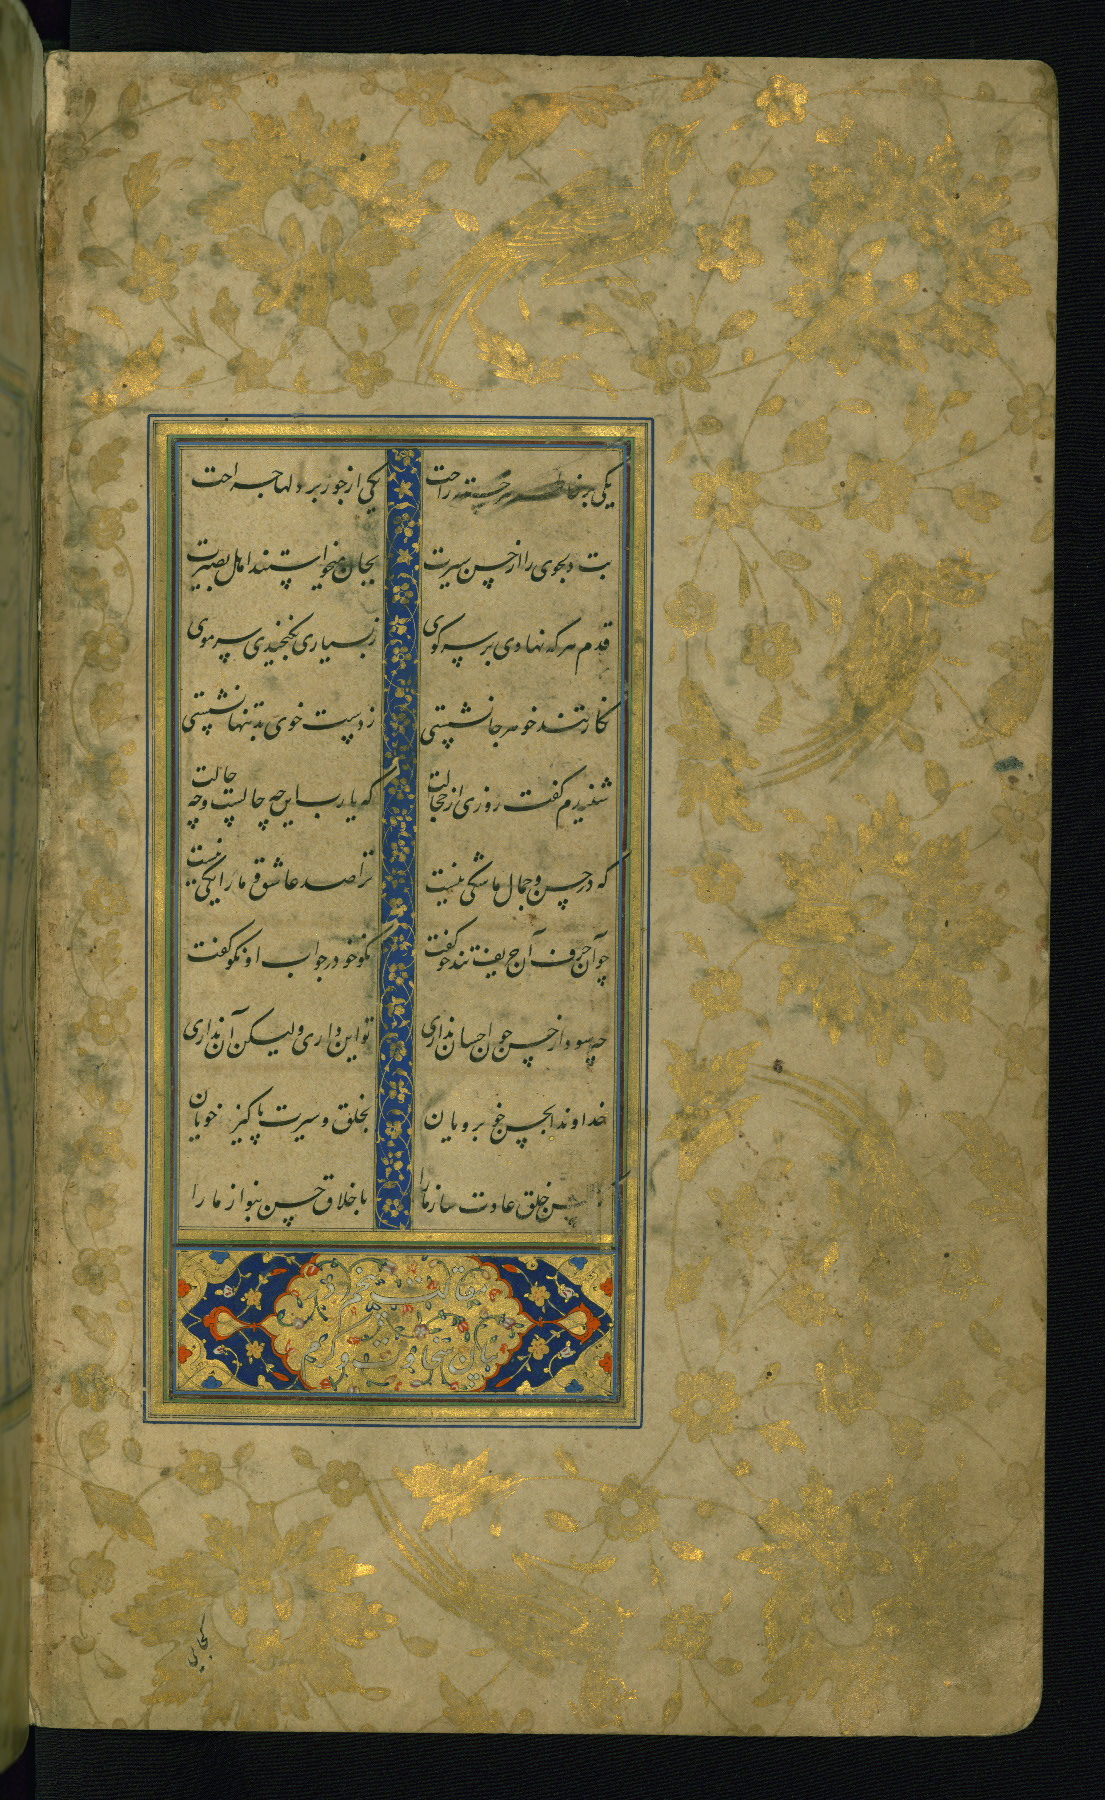 یکی بر خاطر هر خسته راحت یکی از جور بر دلها جراحت
بت دلجوی را از حسن سیرت بجان میخواستند اهل بصیرت
قدم هر که نهادی بر سر کوی ز بسیاری نگنجیدی سر موی
نگار تند خو هر جا نشستی ز دست خوی بد تنها نشستی
شنیدم گفت روزی از خجالت که یا رب این چه حالست و چه حالت
که در حسن و جمال ما شکی نیست ترا صد عاشق و ما را یکی نیست
چو آن حرف آن حریف تند خو گفت نکو خو در جواب او نکو گفت
چه سود از حسن چون احسان نداری تو این داری ولیکن آن نداری
خداوندا بحسن خوبرویان بخلق و سیرت پاکیزه خویان
حسن خلق عادت ساز ما را باخلاق حسن بنواز ما را
مقالت پنجم در
بیان سخاوت و کرم